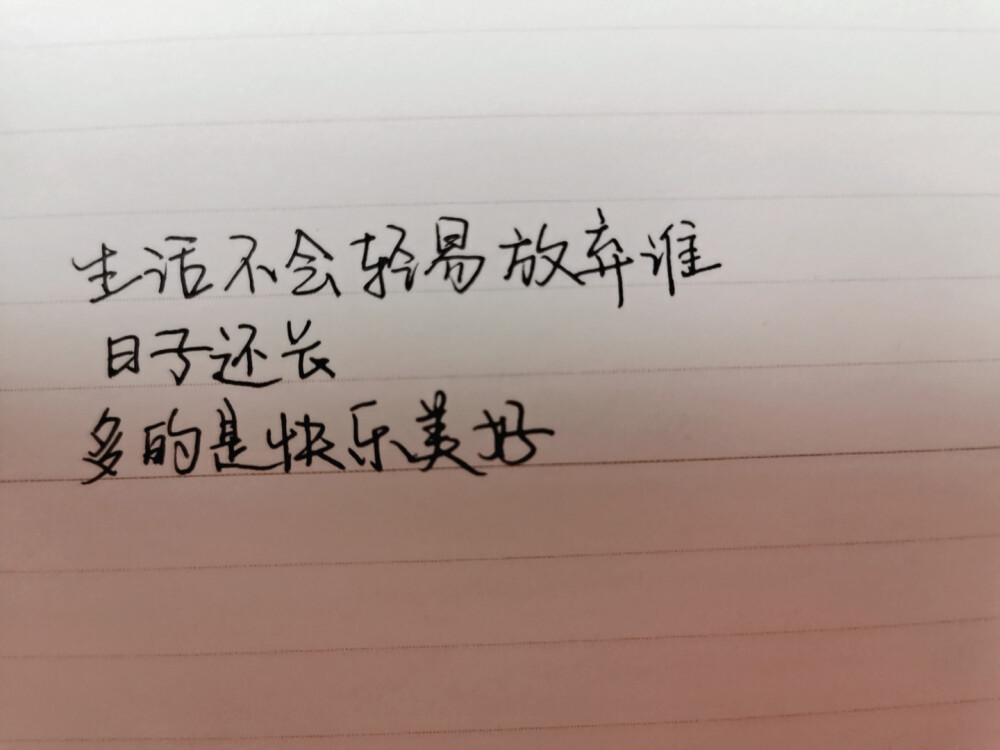 生活不会轻易放弃谁
日子还长
多的是快乐美好